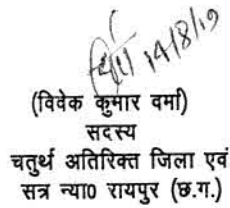 14/8/19
(विवेक कुमार वर्मा)
सदस्य
चतुर्थ अतिरिक्त जिला एवं
सत्र न्या0 रायपुर (छ.ग.)